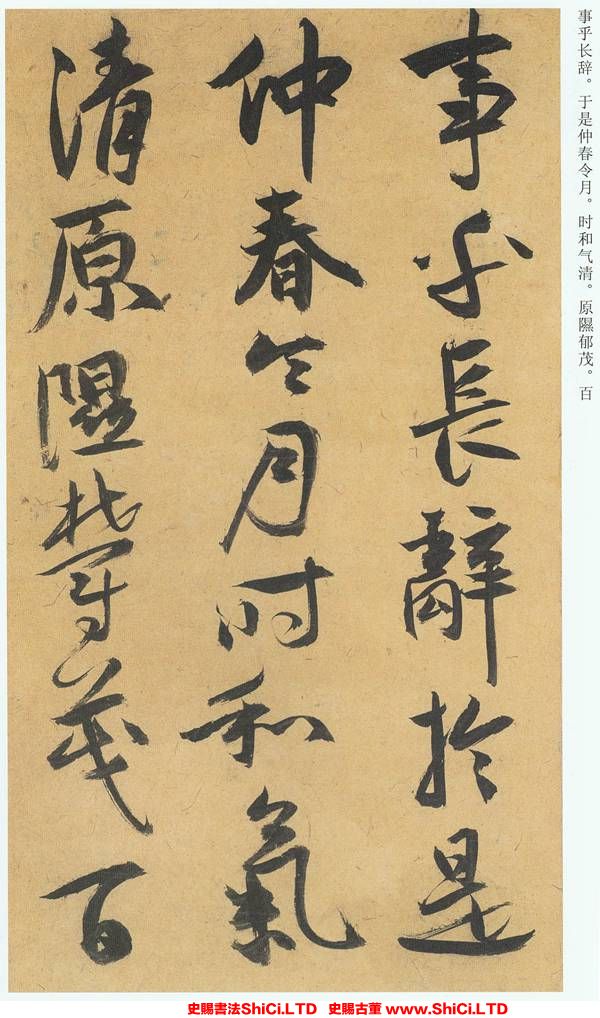 事乎长辞。于是仲春令月。时和气清。原隰郁茂。百
事乎長辭於是
仲春令月时和氣
清原隰鬱茂百
史賜書法ShiCi.LTD 史賜古董 www.ShiCi.LTD